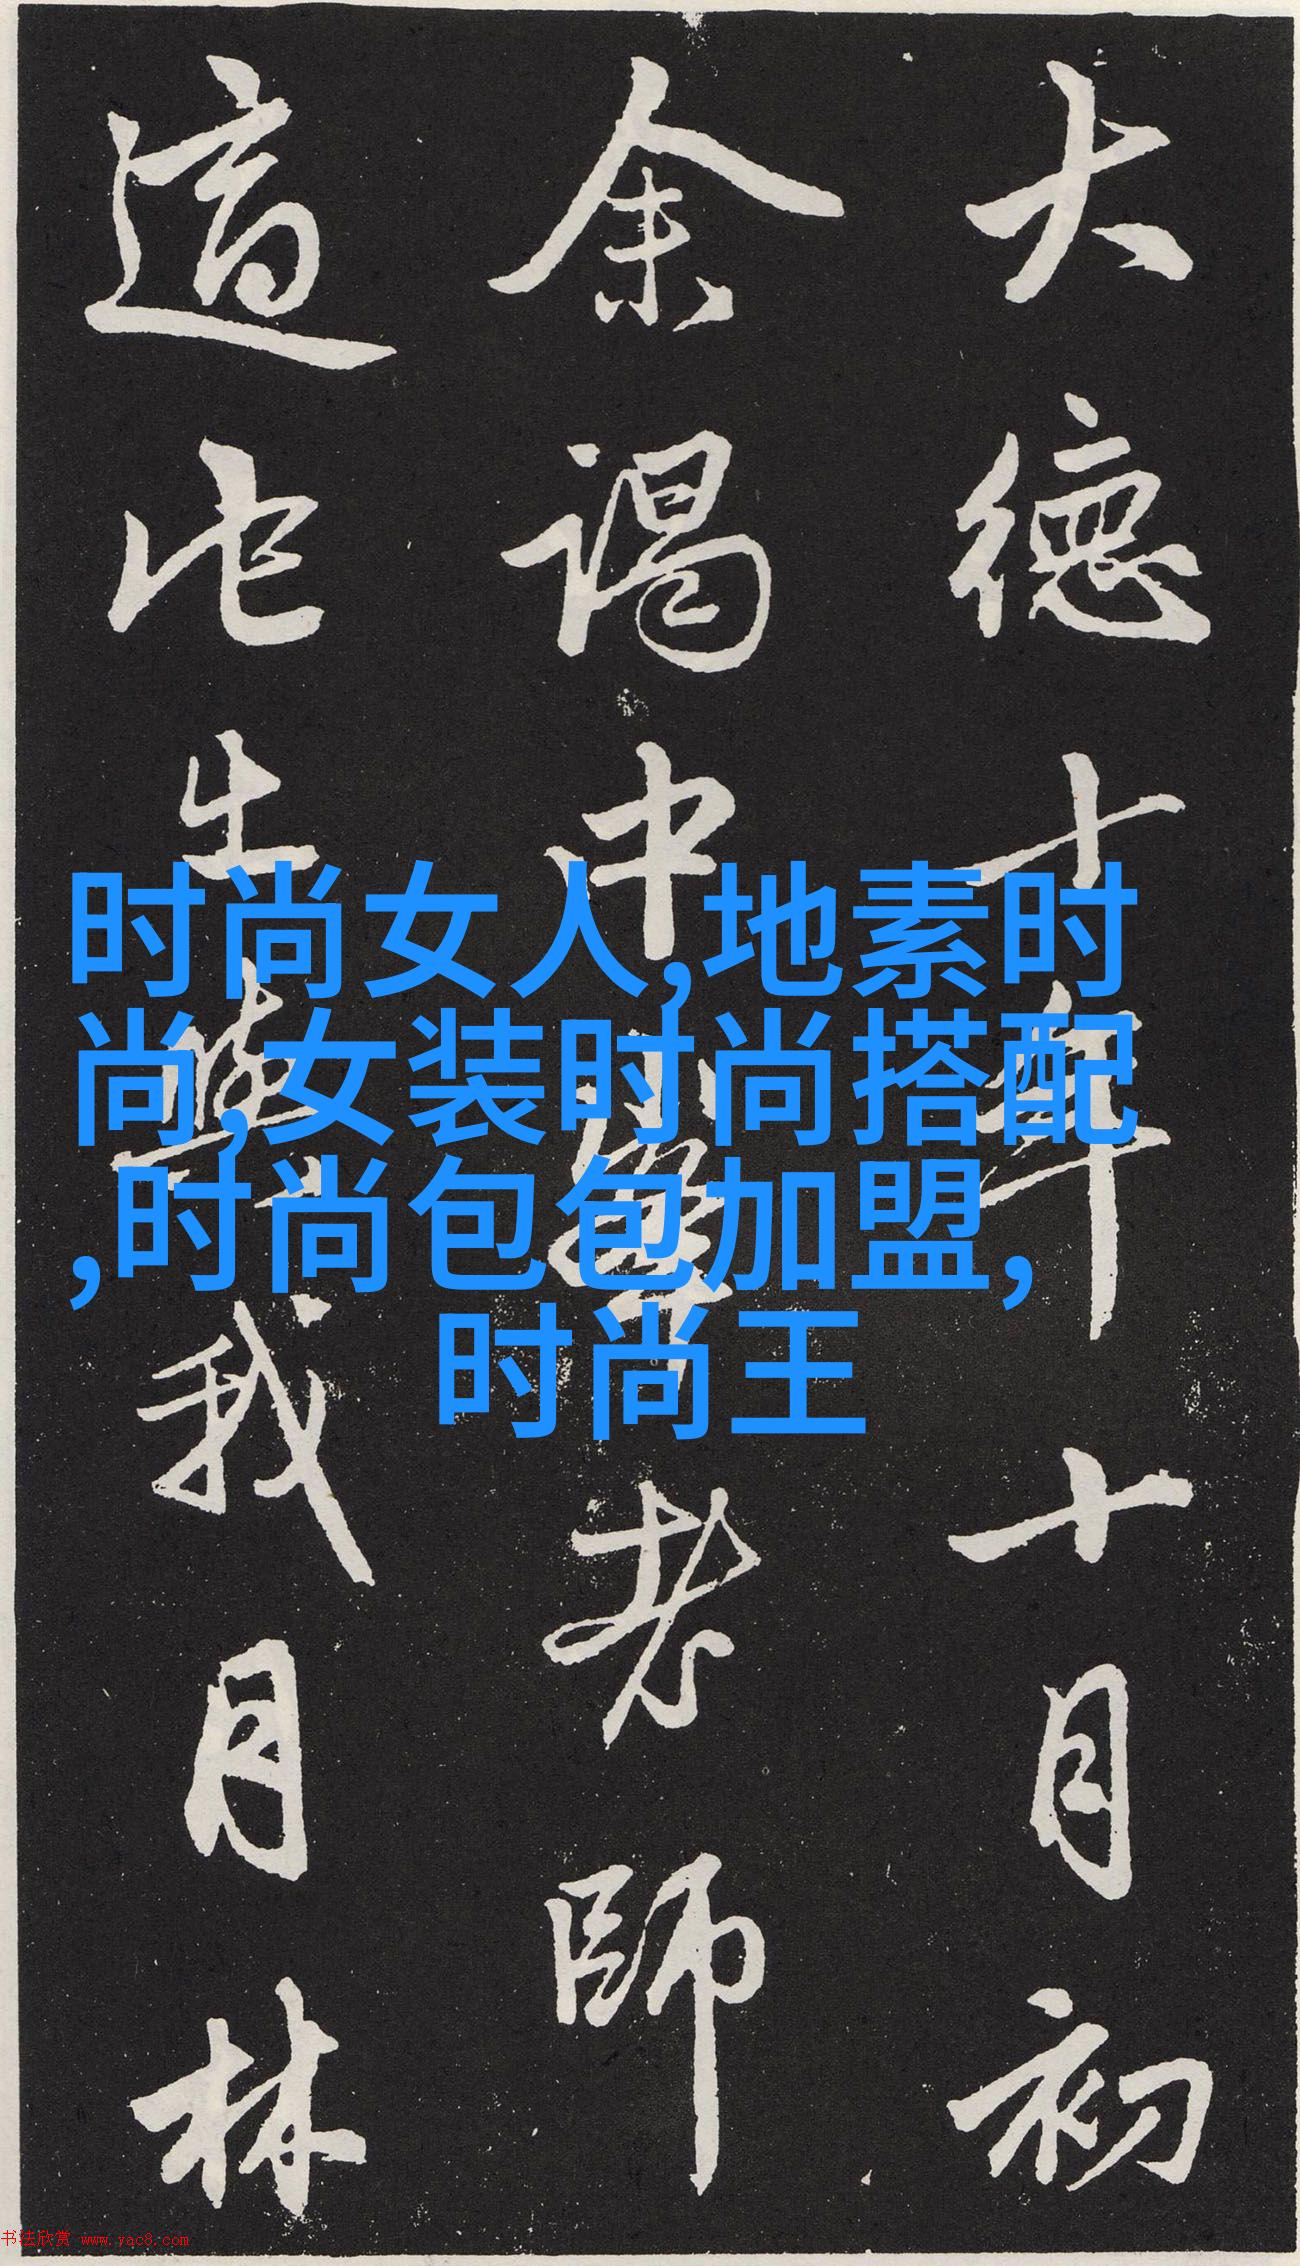 大德十年十月初
余謁中峯老師
適此生與我月林
时尚女人,地素时
尚,女装时尚搭配
,时尚包包加盟,
时尚王
书法欣赏 www.yac8.com